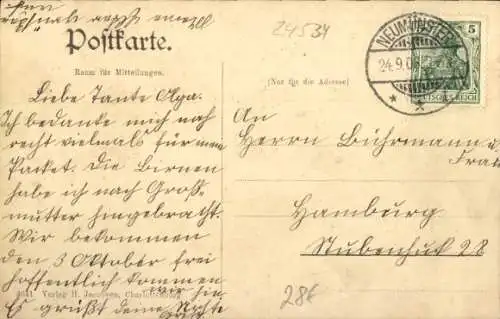 24534
Postkarte.
NEUMÜNSTER
5
Raum für Mitteilungen.
24.9.0
(Nur für die Adresse)
DEUTSCHES REICH
Liebe Tante Olga.
Ich bedanke mich noch
recht vielmals für mein
Packet. Die Birnen
habe ich nach Groß
mutter hingebracht.
Wir bekommen
den 3 Oktober frei
hoffentlich kommen
wir hin
Es grüßt deine Nichte
An
Herrn Bührmann u.
Frau
Hamburg
Stubenhuk 28
Verlag H. Jacobsen, Charlottenburg
28€